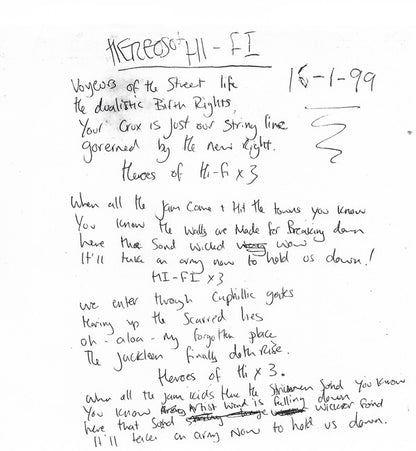 Heroes of HI-FI
16-1-99
Voyeurs of the Street life
the dualistic Birth Rights,
Your Crux is Just our String line
governed by the new Right.
Heroes of Hi-Fi x 3
When all the Jam Come + Hit the towns you know
You know the walls are Made for Breaking down
here that Sond wicked now
It'll take an army now to hold us down!
HI-FI x3
We enter through gates
tearing up the Scarred lies
oh - aloa - my forgotten place
The finally doth rise.
Heroes of Hi x 3.
When all the Jam kids Have the Sond You Know
You know Artist Wand is falling down
here that Sond wicker Sond
It'll take an army Now to hold us down.